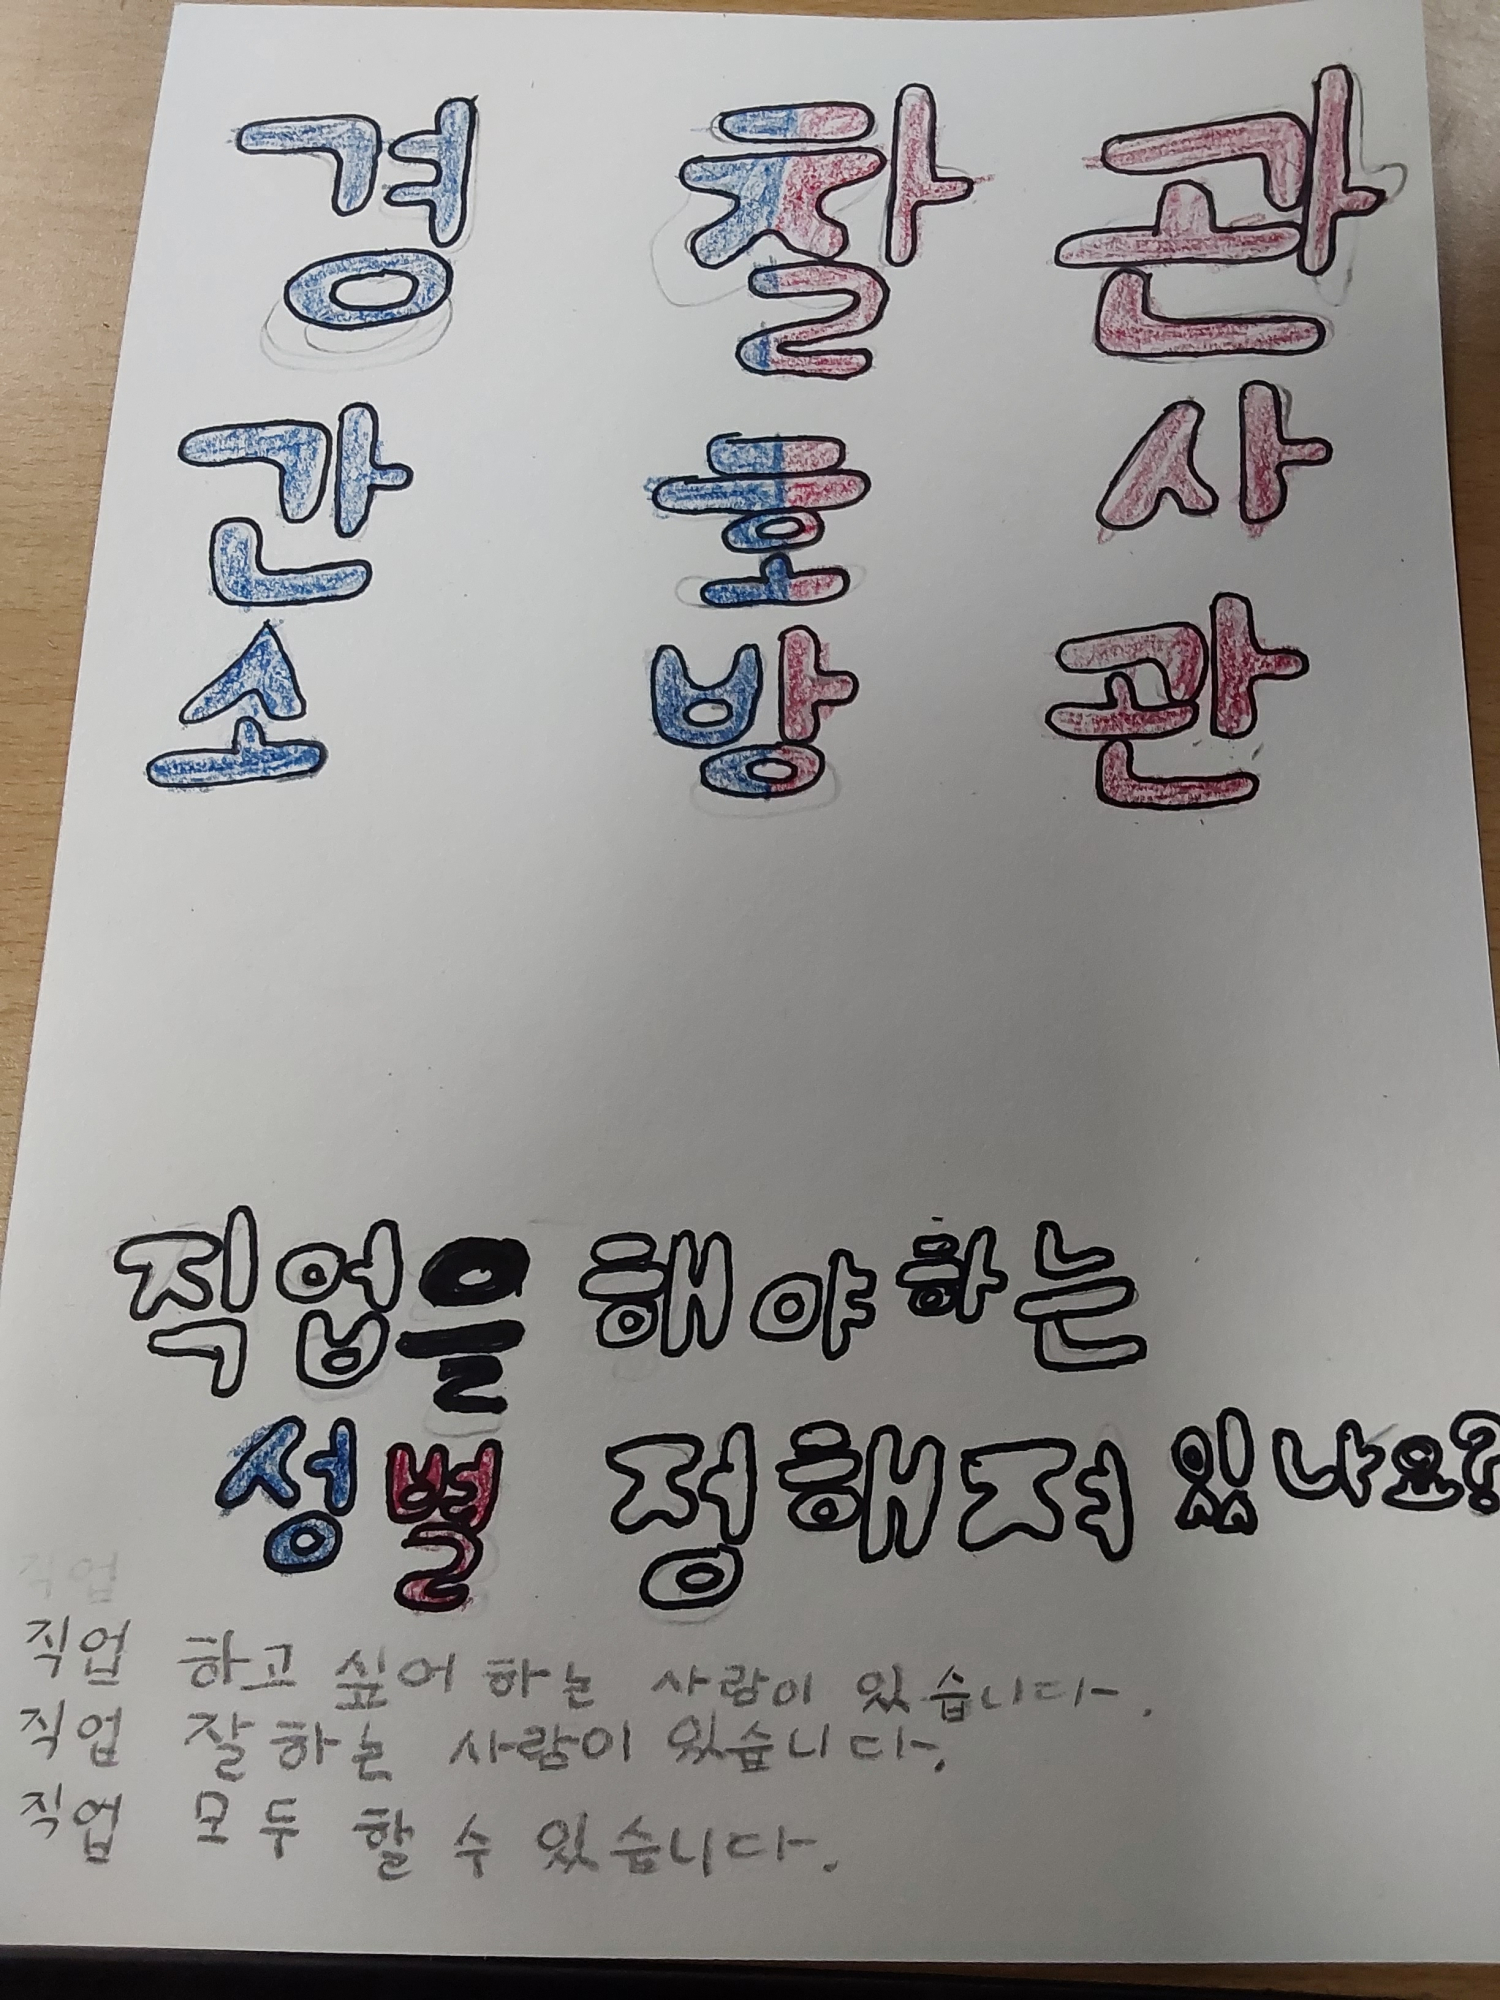 경찰관
간호사
소방관
직업을 해야하는
성별 정해져 있나요?
직업
직업 하고 싶어 하는 사람이 있습니다.
직업 잘하는 사람이 있습니다.
직업 모두 할 수 있습니다.